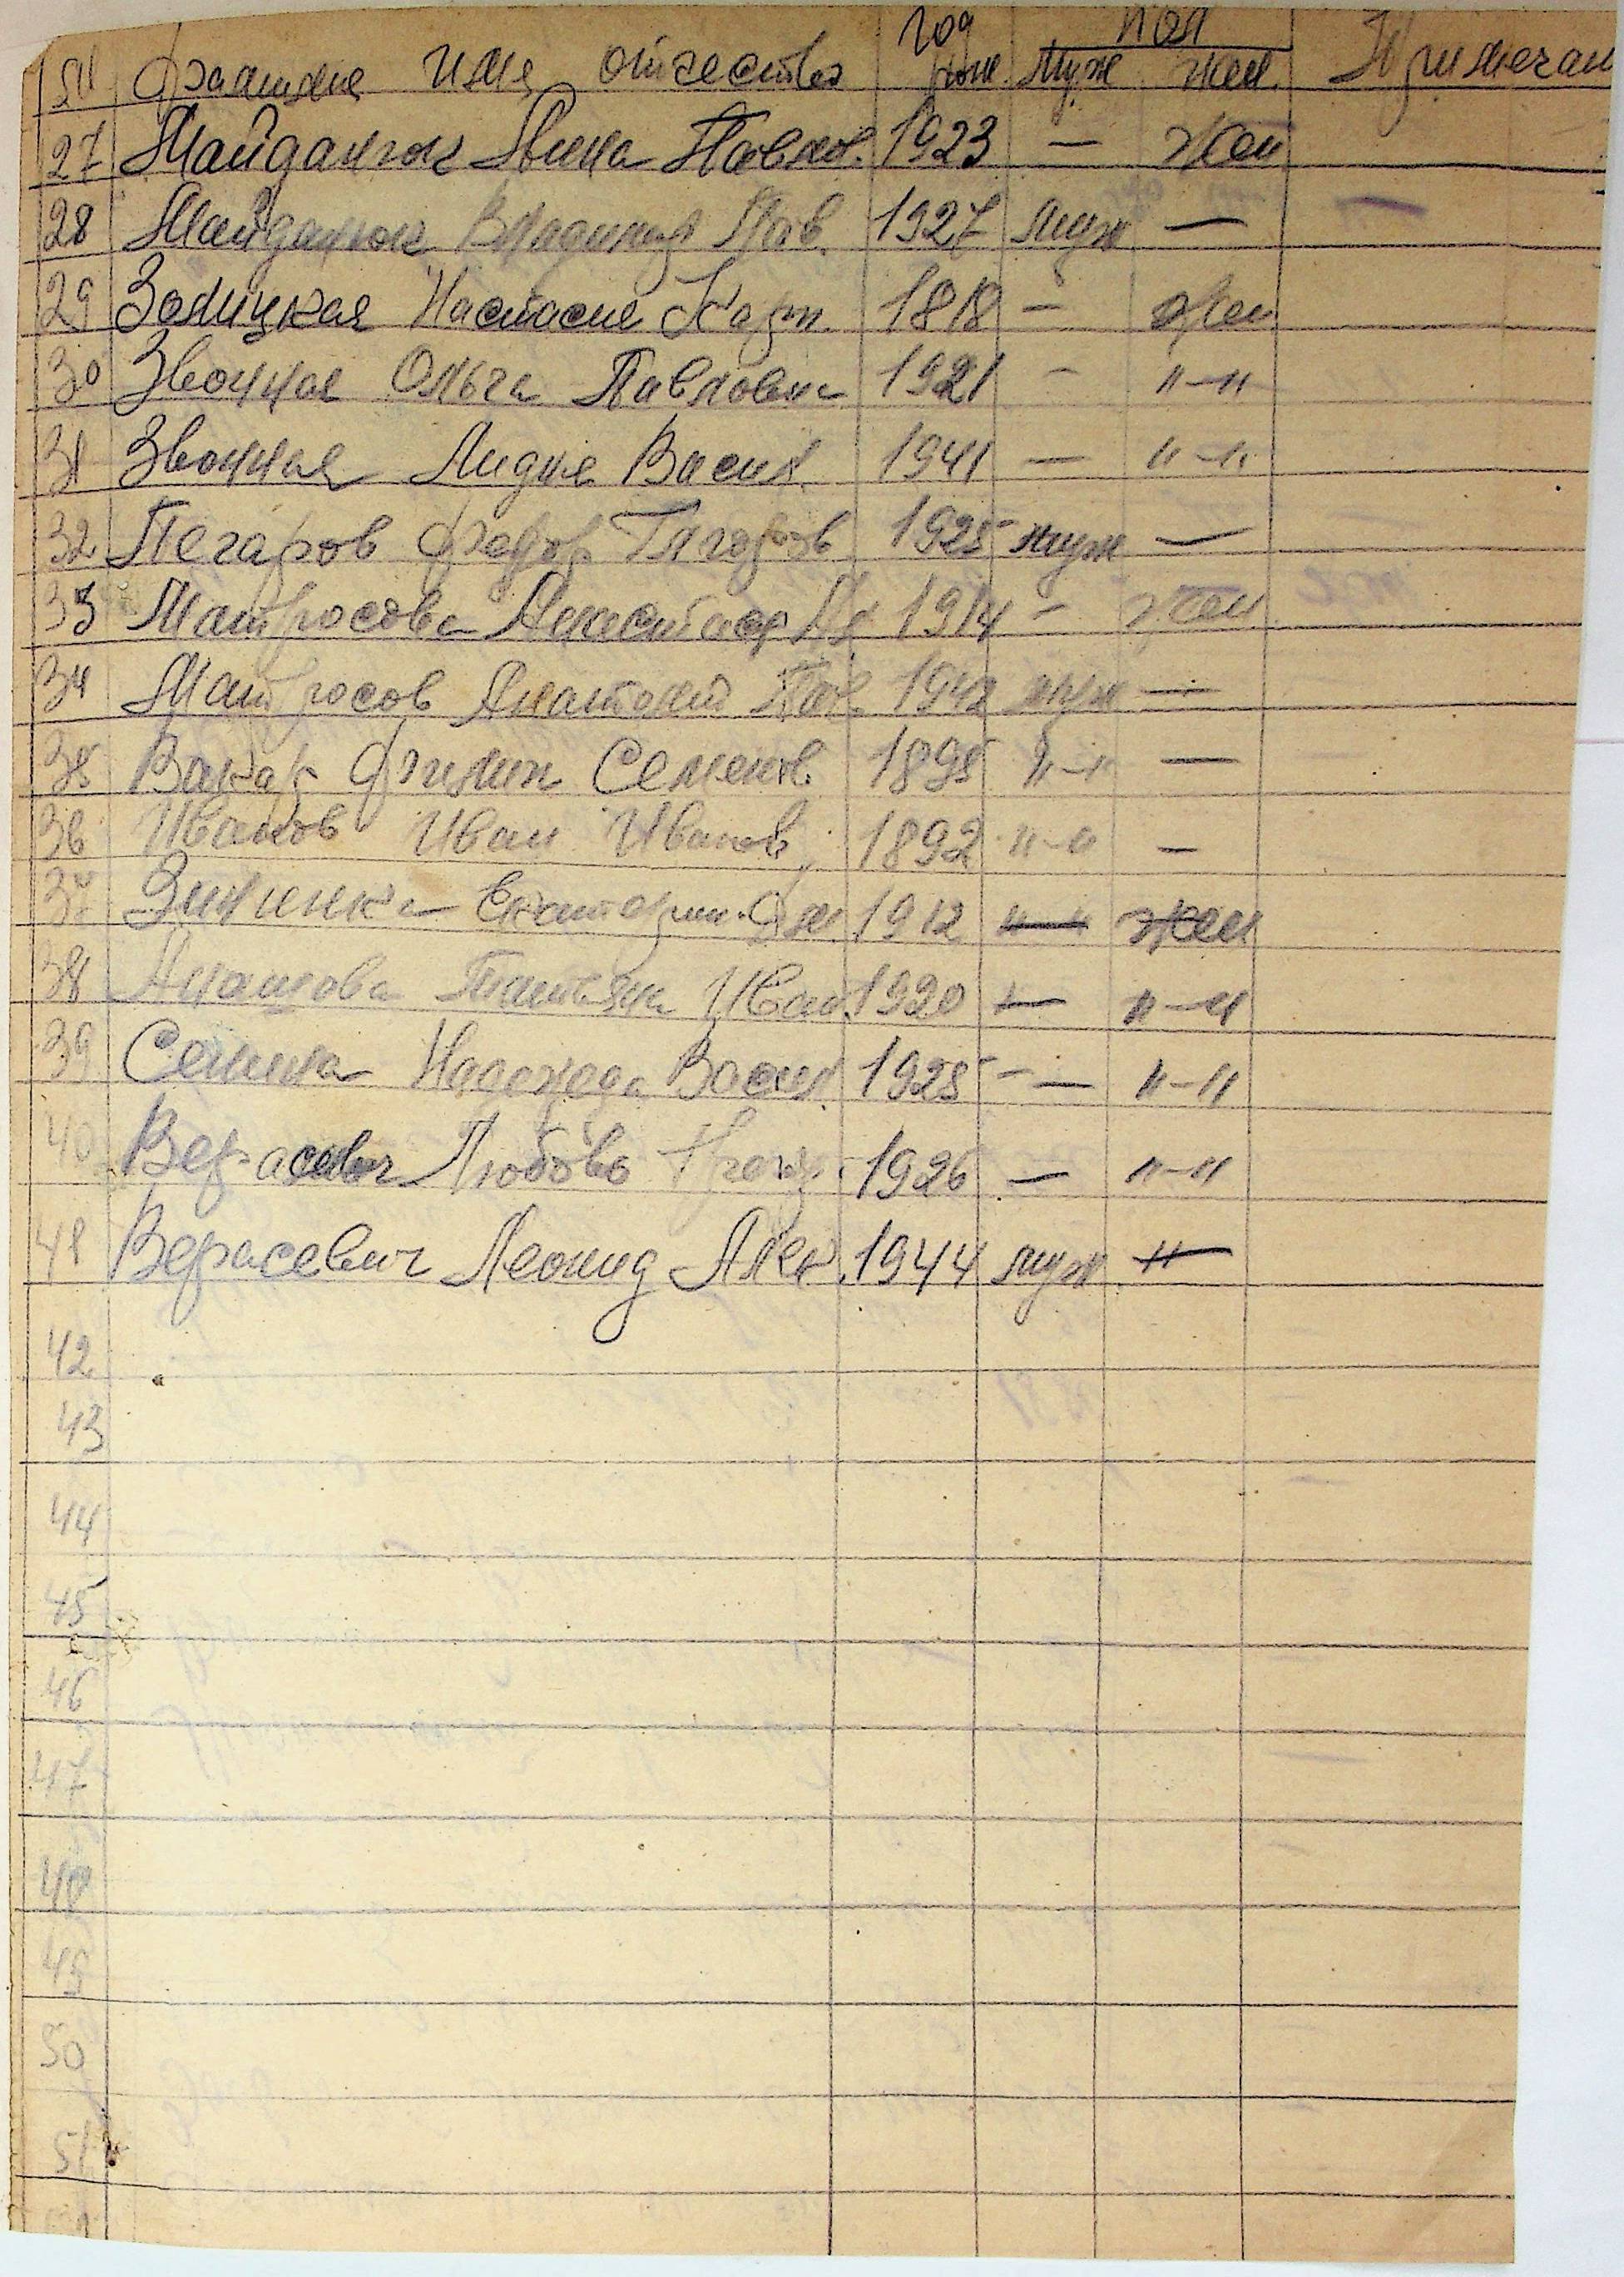 Год Пол
№ Фамилия Имя Отчество рож. Муж Жен. Примечан
27 Майданюк Анна Павлов. 1923 — Жен
28 Майданюк Владимир Пав. 1927 муж —
29 Залицкая Настасия 1818 — Жен
30 Звонная Ольга Павловна 1921 - "—"
31 Звонная Лидия Васил. 1941 — "—"
32 Пегаров Федор 1925 муж —
33 Матросова Анастаср 1914 - Жен
34 Матросов Анатолий Пав. 1942 муж —
35 Вакар Филип Семенов. 1895 "—" —
36 Иванов Иван Иванов. 1892 "—" —
37 Екатерин. 1912 "—" Жен
38 Татьяна Иван. 1920 — "—"
39 Сенина Надежда Васил. 1925 - — "—"
40 Верасевич Любовь 1926 — "—"
41 Верасевич Леонид Алек. 1944 муж "—
42
43
44
45
46
47
48
49
50
51